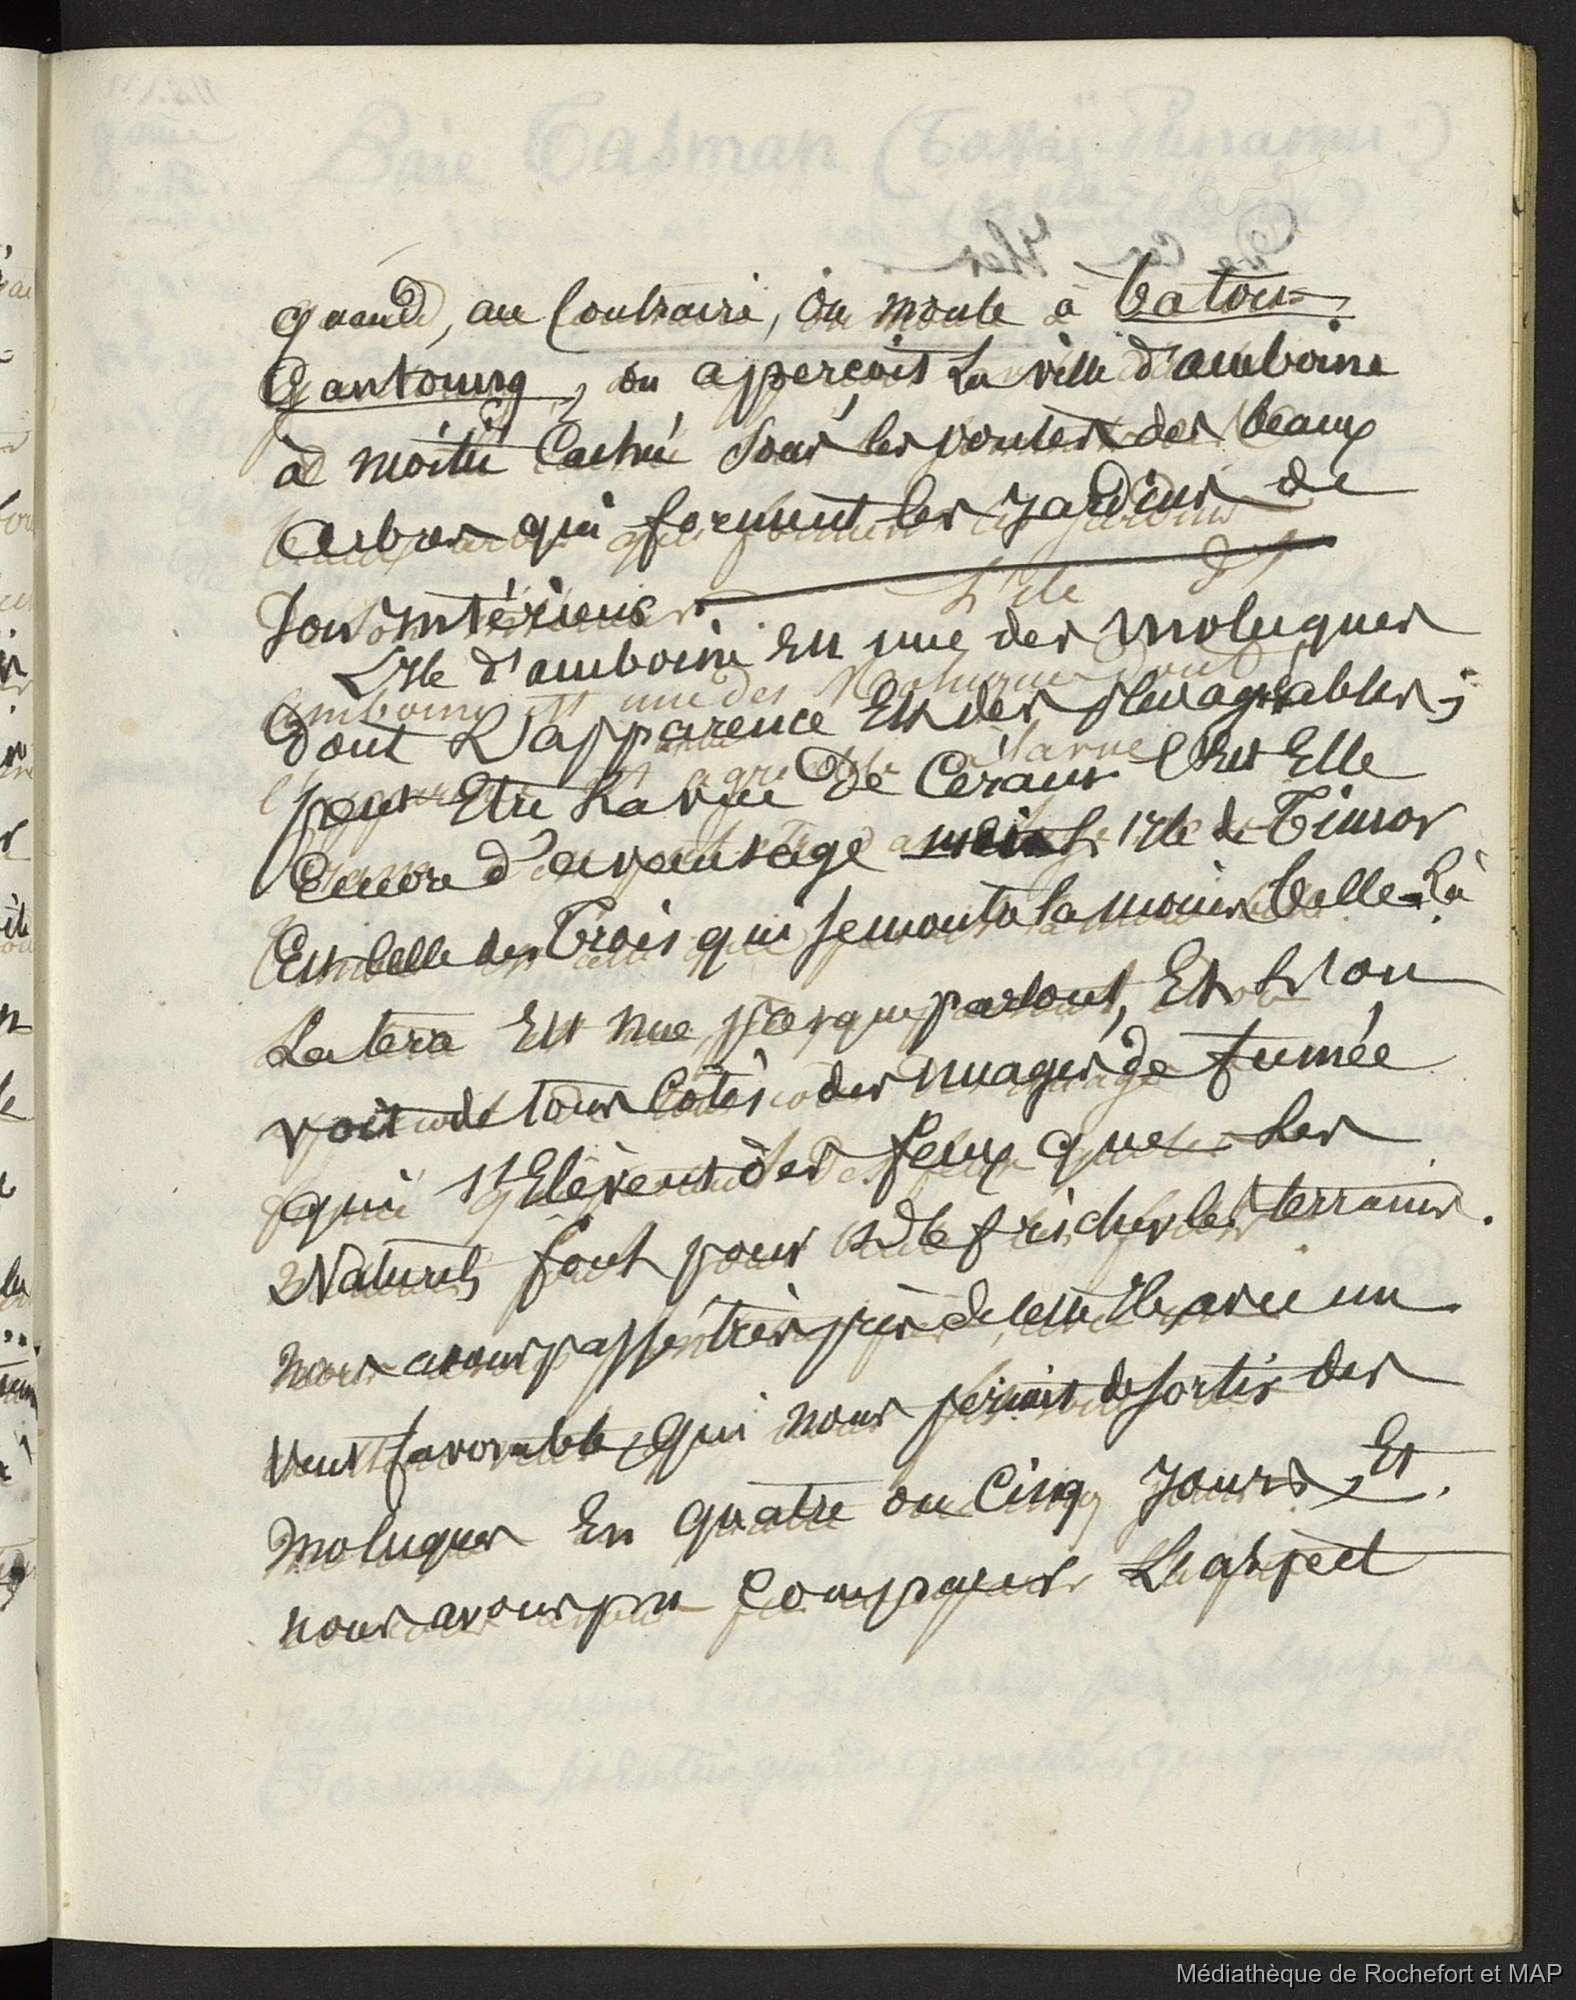 quand, au Contraire, on monte à batou-
Gantoung, on apperçoit La ville d'amboine
à moitié Cachée sous les voutes des beaux
arbres qui forment les jardins de
Son intérieur.
L'Ile d'amboine Est une des moluques
dont L'apparence Est des plus agréables;
peut Etre La vue De Céram Est Elle
Encore d'avantage L'Ile de Timor
Est celle des Trois qui se montre la moins belle - Là
La terre Est nue presque partout, Et L'on
voit de tous Côtés des nuages de fumée
qui s'Elèvent des feux que Les
Naturels font pour défricher les terrains.
nous avons passé très près de cette Ile avec un
vent favorable, qui nous permit de sortir des
moluques En quatre ou Cinq jours, Et
nous avons pu Comparer L'aspect
Médiathèque de Rochefort et MAP